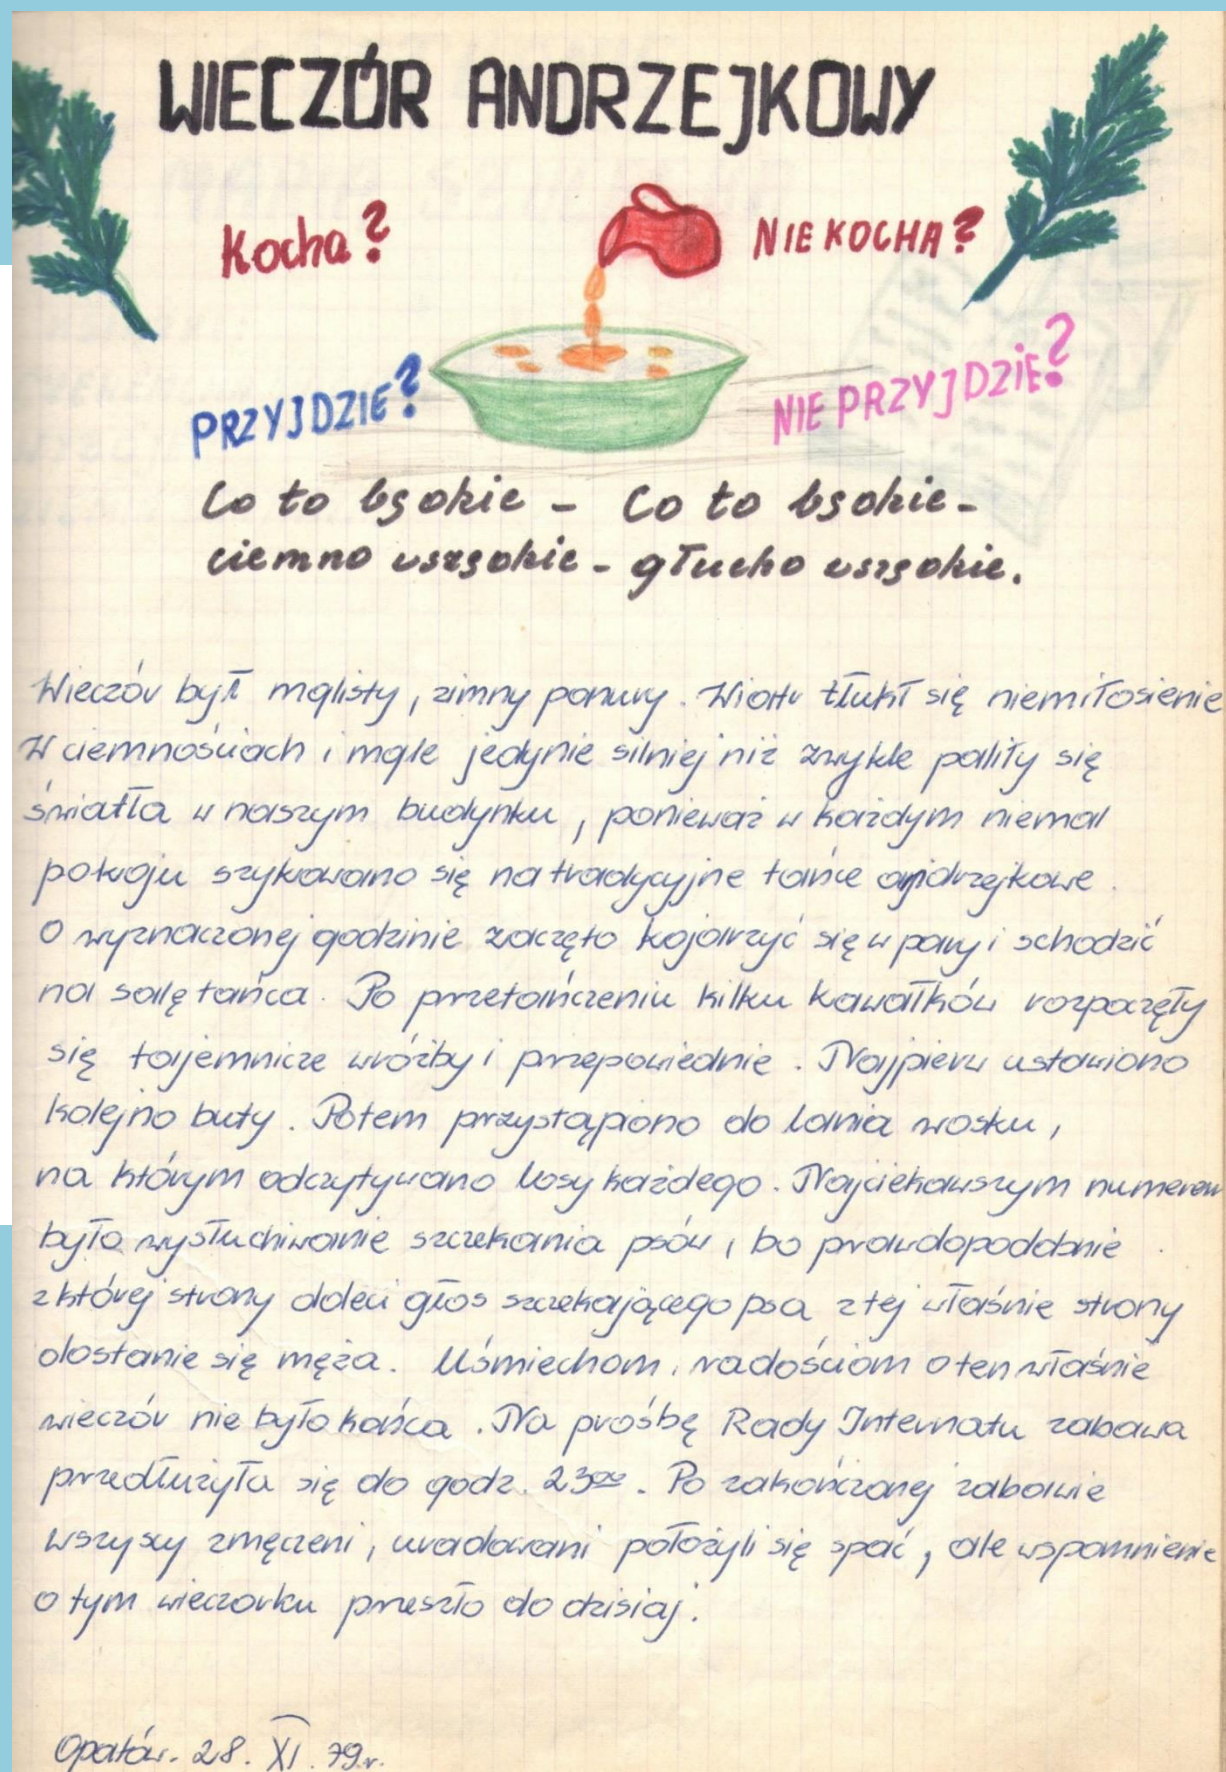 WIECZÓR ANDRZEJKOWY
Kocha?
NIE KOCHA?
PRZYJDZIE?
NIE PRZYJDZIE?
Co to będzie - Co to będzie -
ciemno wszędzie - głucho wszędzie.
Wieczór był mglisty, zimny ponury. Wiatr tłukł się niemiłosienie
W ciemnościach i mgle jedynie silniej niż zwykle paliły się
światła w naszym budynku, ponieważ w każdym niemal
pokoju szykowano się na tradycyjne tańce andrzejkowe.
O wyznaczonej godzinie zaczęto kojarzyć się w pary i schodzić
na salę tańca. Po przetańczeniu kilku kawałków rozpoczęły
się tajemnicze wróżby i przepowiednie. Najpierw ustawiono
kolejno buty. Potem przystąpiono do lania wosku,
na którym odczytywano losy każdego. Najciekawszym numerem
było wysłuchiwanie szczekania psów, bo prawdopodobnie
z której strony doleci głos szczekającego psa z tej właśnie strony
dostanie się męża. Uśmiechom, radościom o ten właśnie
wieczór nie było końca. Na prośbę Rady Internatu zabawa
przedłużyła się do godz. 23⁰⁰. Po zakończonej zabawie
wszyscy zmęczeni, uradowani położyli się spać, ale wspomnienie
o tym wieczorku przeszło do dzisiaj.
Opatów. 28. XI. 79.r.